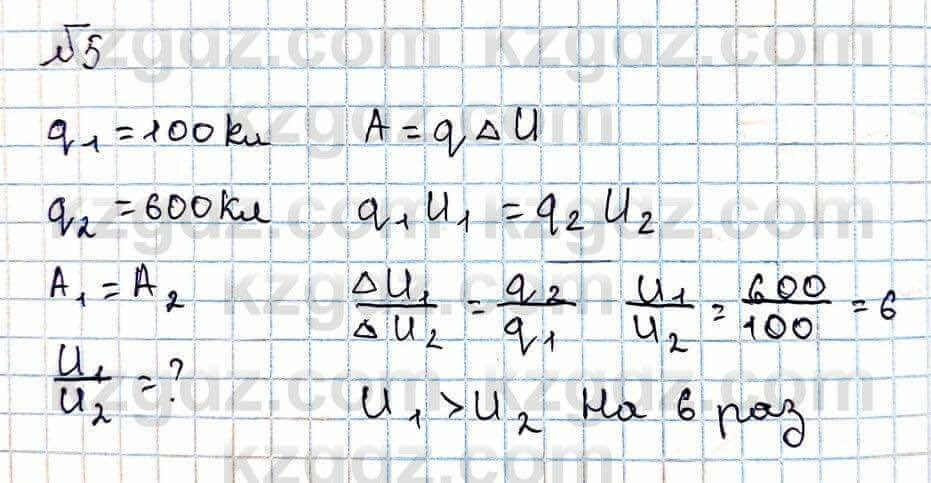 √5
q₁ = 100 Кл A = q Δ U
q₂ = 600 Кл q₁ U₁ = q₂ U₂
A₁ = A₂ ΔU₁/ΔU₂ = q₂/q₁ U₁/U₂ = 600/100 = 6
U₁/U₂ = ? U₁ > U₂ На 6 раз
kzgdz.com kzgdz.com
kzgdz.com
kzgdz.com kzgdz.com
kzgdz.com
kzgdz.com kzgdz.com
kzgdz.com